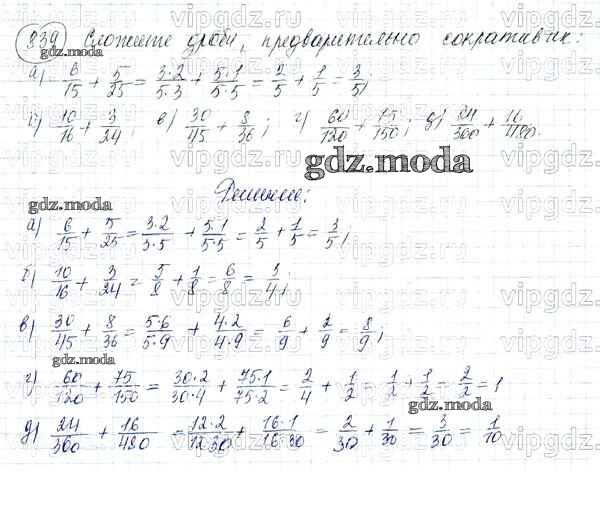 839 Сложите дроби, предварительно сократив их:
gdz.moda
а) 6/15 + 5/25 = 3·2/5·3 + 5·1/5·5 = 2/5 + 1/5 = 3/5;
б) 10/16 + 3/24; в) 30/45 + 8/36; г) 60/120 + 75/150; д) 24/360 + 16/480.
gdz.moda
Решение:
gdz.moda
а) 6/15 + 5/25 = 3·2/3·5 + 5·1/5·5 = 2/5 + 1/5 = 3/5;
б) 10/16 + 3/24 = 5/8 + 1/8 = 6/8 = 3/4;
в) 30/45 + 8/36 = 5·6/5·9 + 4·2/4·9 = 6/9 + 2/9 = 8/9;
gdz.moda
г) 60/120 + 75/150 = 30·2/30·4 + 75·1/75·2 = 2/4 + 1/2 = 1/2 + 1/2 = 2/2 = 1
gdz.moda
д) 24/360 + 16/480 = 12·2/12·30 + 16·1/16·30 = 2/30 + 1/30 = 3/30 = 1/10